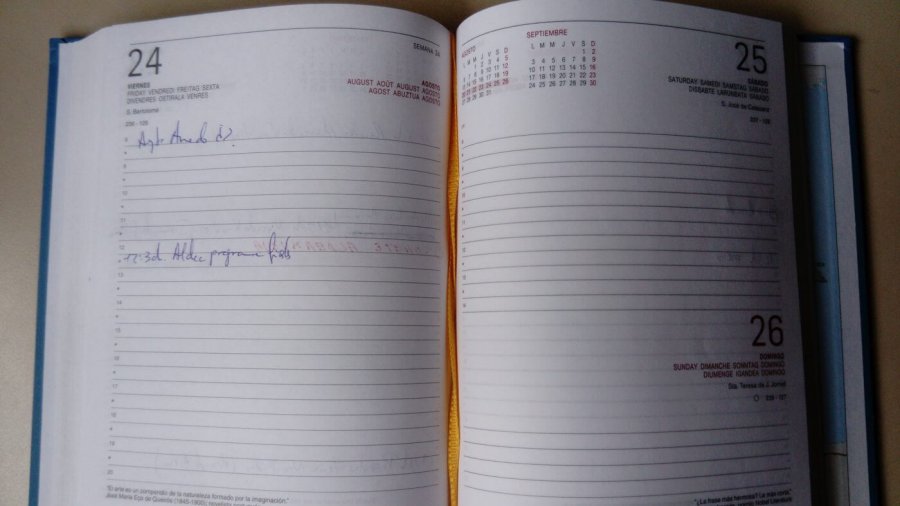 24
SEMANA 34
VIERNES
FRIDAY VENDREDI FREITAG SEXTA
DIVENDRES OSTIRALA VENRES
AGOSTO
AUGUST AOÛT AUGUST AGOSTO
AGOST ABUZTUA AGOSTO
S. Bartolomé
236 - 129
8
9
10
11
12
12:30. Aldee programa
13
14
15
16
17
18
19
20
"El arte es un compendio de la naturaleza formado por la imaginación."
José María Eça de Queirós (1845-1900);
AGOSTO
L M M J V S D
SEPTIEMBRE
L M M J V S D
1 2
3 4 5 6 7 8 9
10 11 12 13 14 15 16
17 18 19 20 21 22 23
24 25 26 27 28 29 30
25
SÁBADO
SATURDAY SAMEDI SAMSTAG SÁBADO
DISSABTE LARUNBATA SÁBADO
S. José de Calasanz
237 - 128
26
DOMINGO
SUNDAY DIMANCHE SONNTAG DOMINGO
DIUMENGE IGANDEA DOMINGO
Sta. Teresa de J. Jornet
238 - 127
"¿La frase más hermosa? La más corta."
Premio Nobel Literature